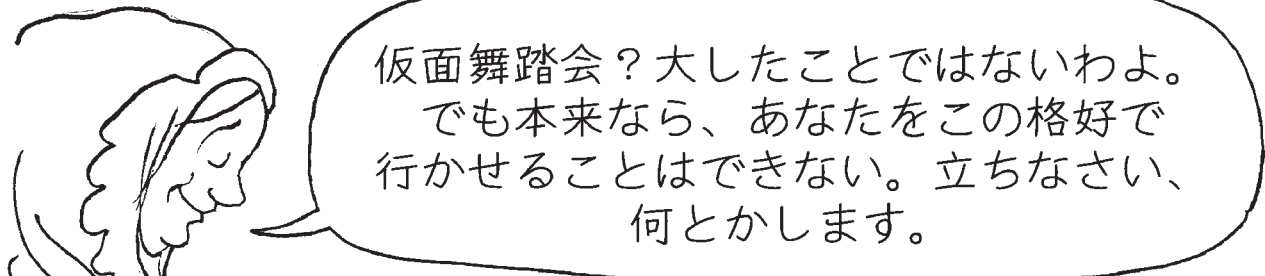 仮面舞踏会？大したことではないわよ。
でも本来なら、あなたをこの格好で
行かせることはできない。立ちなさい、
何とかします。